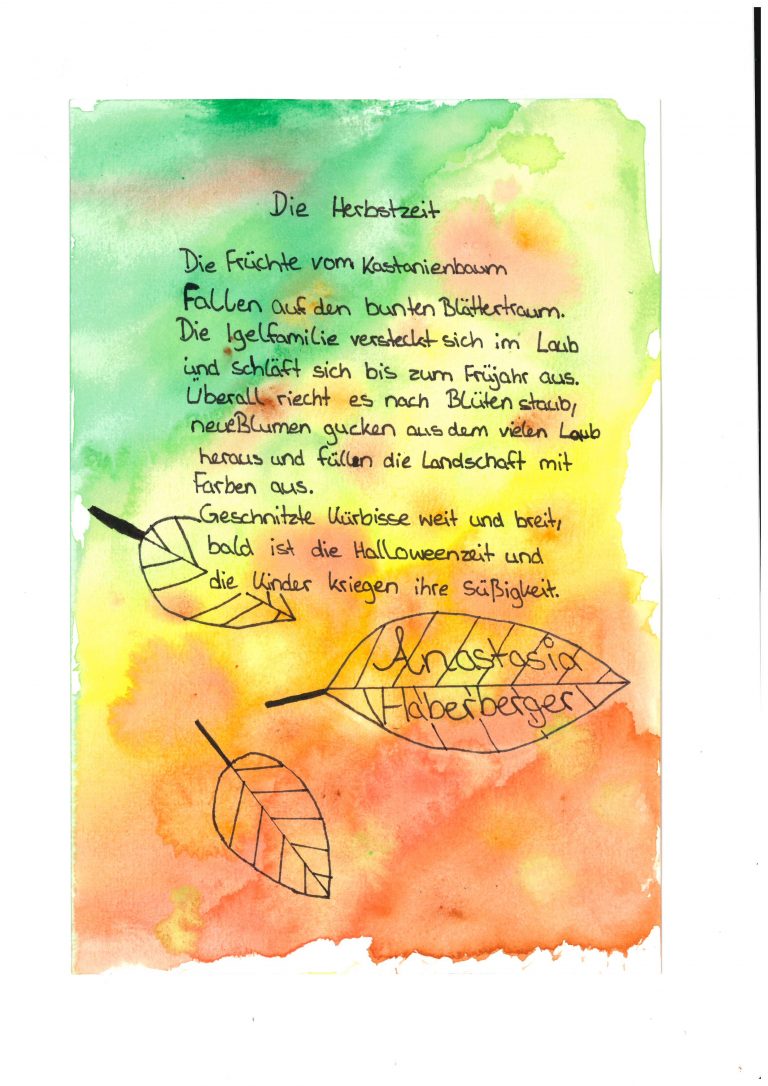 Die Herbstzeit
Die Früchte vom Kastanienbaum
Fallen auf den bunten Blättertraum.
Die Igelfamilie versteckt sich im Laub
und schläft sich bis zum Früjahr aus.
Überall riecht es nach Blüten staub,
neue Blumen gucken aus dem vielen Laub
heraus und füllen die Landschaft mit
Farben aus.
Geschnitzte Kürbisse weit und breit,
bald ist die Halloweenzeit und
die Kinder kriegen ihre Süßigkeit.
Anastasia
Haberberger